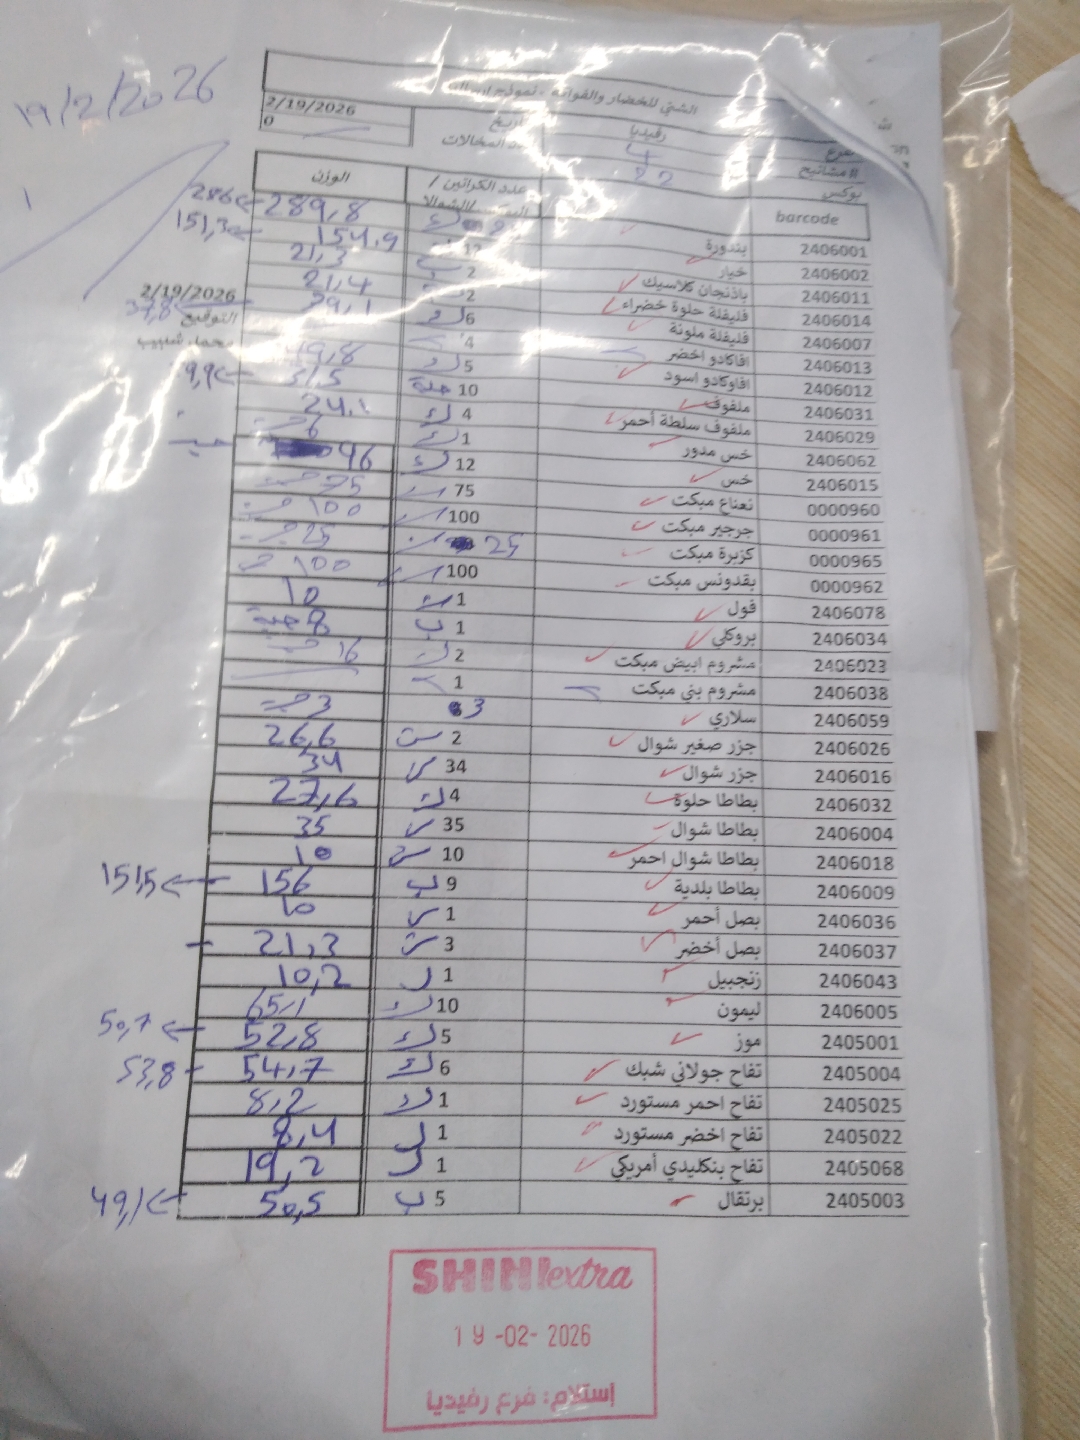 19/2/2026
الشني للخضار والفواكه - نموذج ارسالية
2/19/2026 رفيديا
0
# مشاتيح
بوكس
الوزن عدد الكراتين / barcode
286 289,8 بندورة 2406001
151,3 154.9 12 خيار 2406002
21,3 2 باذنجان كلاسيك 2406011
21,4 2 فليفلة حلوة خضراء 2406014
37,8 39,1 6 فليفلة ملونة 2406007
2/19/2026
التوقيع
4 افاكادو اخضر 2406013
49,8 5 افاوكادو اسود 2406012
9,9 10 حبة ملفوف 2406031
24.1 4 ملفوف سلطة أحمر 2406029
6 1 خس مدور 2406062
96 12 خس 2406015
75 75 نعناع مبكت 0000960
100 100 جرجير مبكت 0000961
25 25 كزبرة مبكت 0000965
100 100 بقدونس مبكت 0000962
10 1 فول 2406078
8 حبة 1 ب بروكلي 2406034
16 2 مشروم ابيض مبكت 2406023
1 مشروم بني مبكت 2406038
3 3 سلاري 2406059
26,6 2 جزر صغير شوال 2406026
34 34 جزر شوال 2406016
27,6 4 بطاطا حلوة 2406032
35 35 بطاطا شوال 2406004
10 10 بطاطا شوال احمر 2406018
151,5 156 9 ب بطاطا بلدية 2406009
10 1 بصل أحمر 2406036
21,3 3 بصل أخضر 2406037
10,2 1 زنجبيل 2406043
65,1 10 ليمون 2406005
50,7 52,8 5 موز 2405001
53,8 54,7 6 تفاح جولاني شبك 2405004
8,2 1 تفاح احمر مستورد 2405025
8,4 1 تفاح اخضر مستورد 2405022
19,2 1 تفاح بنكليدي أمريكي 2405068
49,1 50,5 5 ب برتقال 2405003
SHINIextra
19 -02- 2026
إستلام: فرع رفيديا